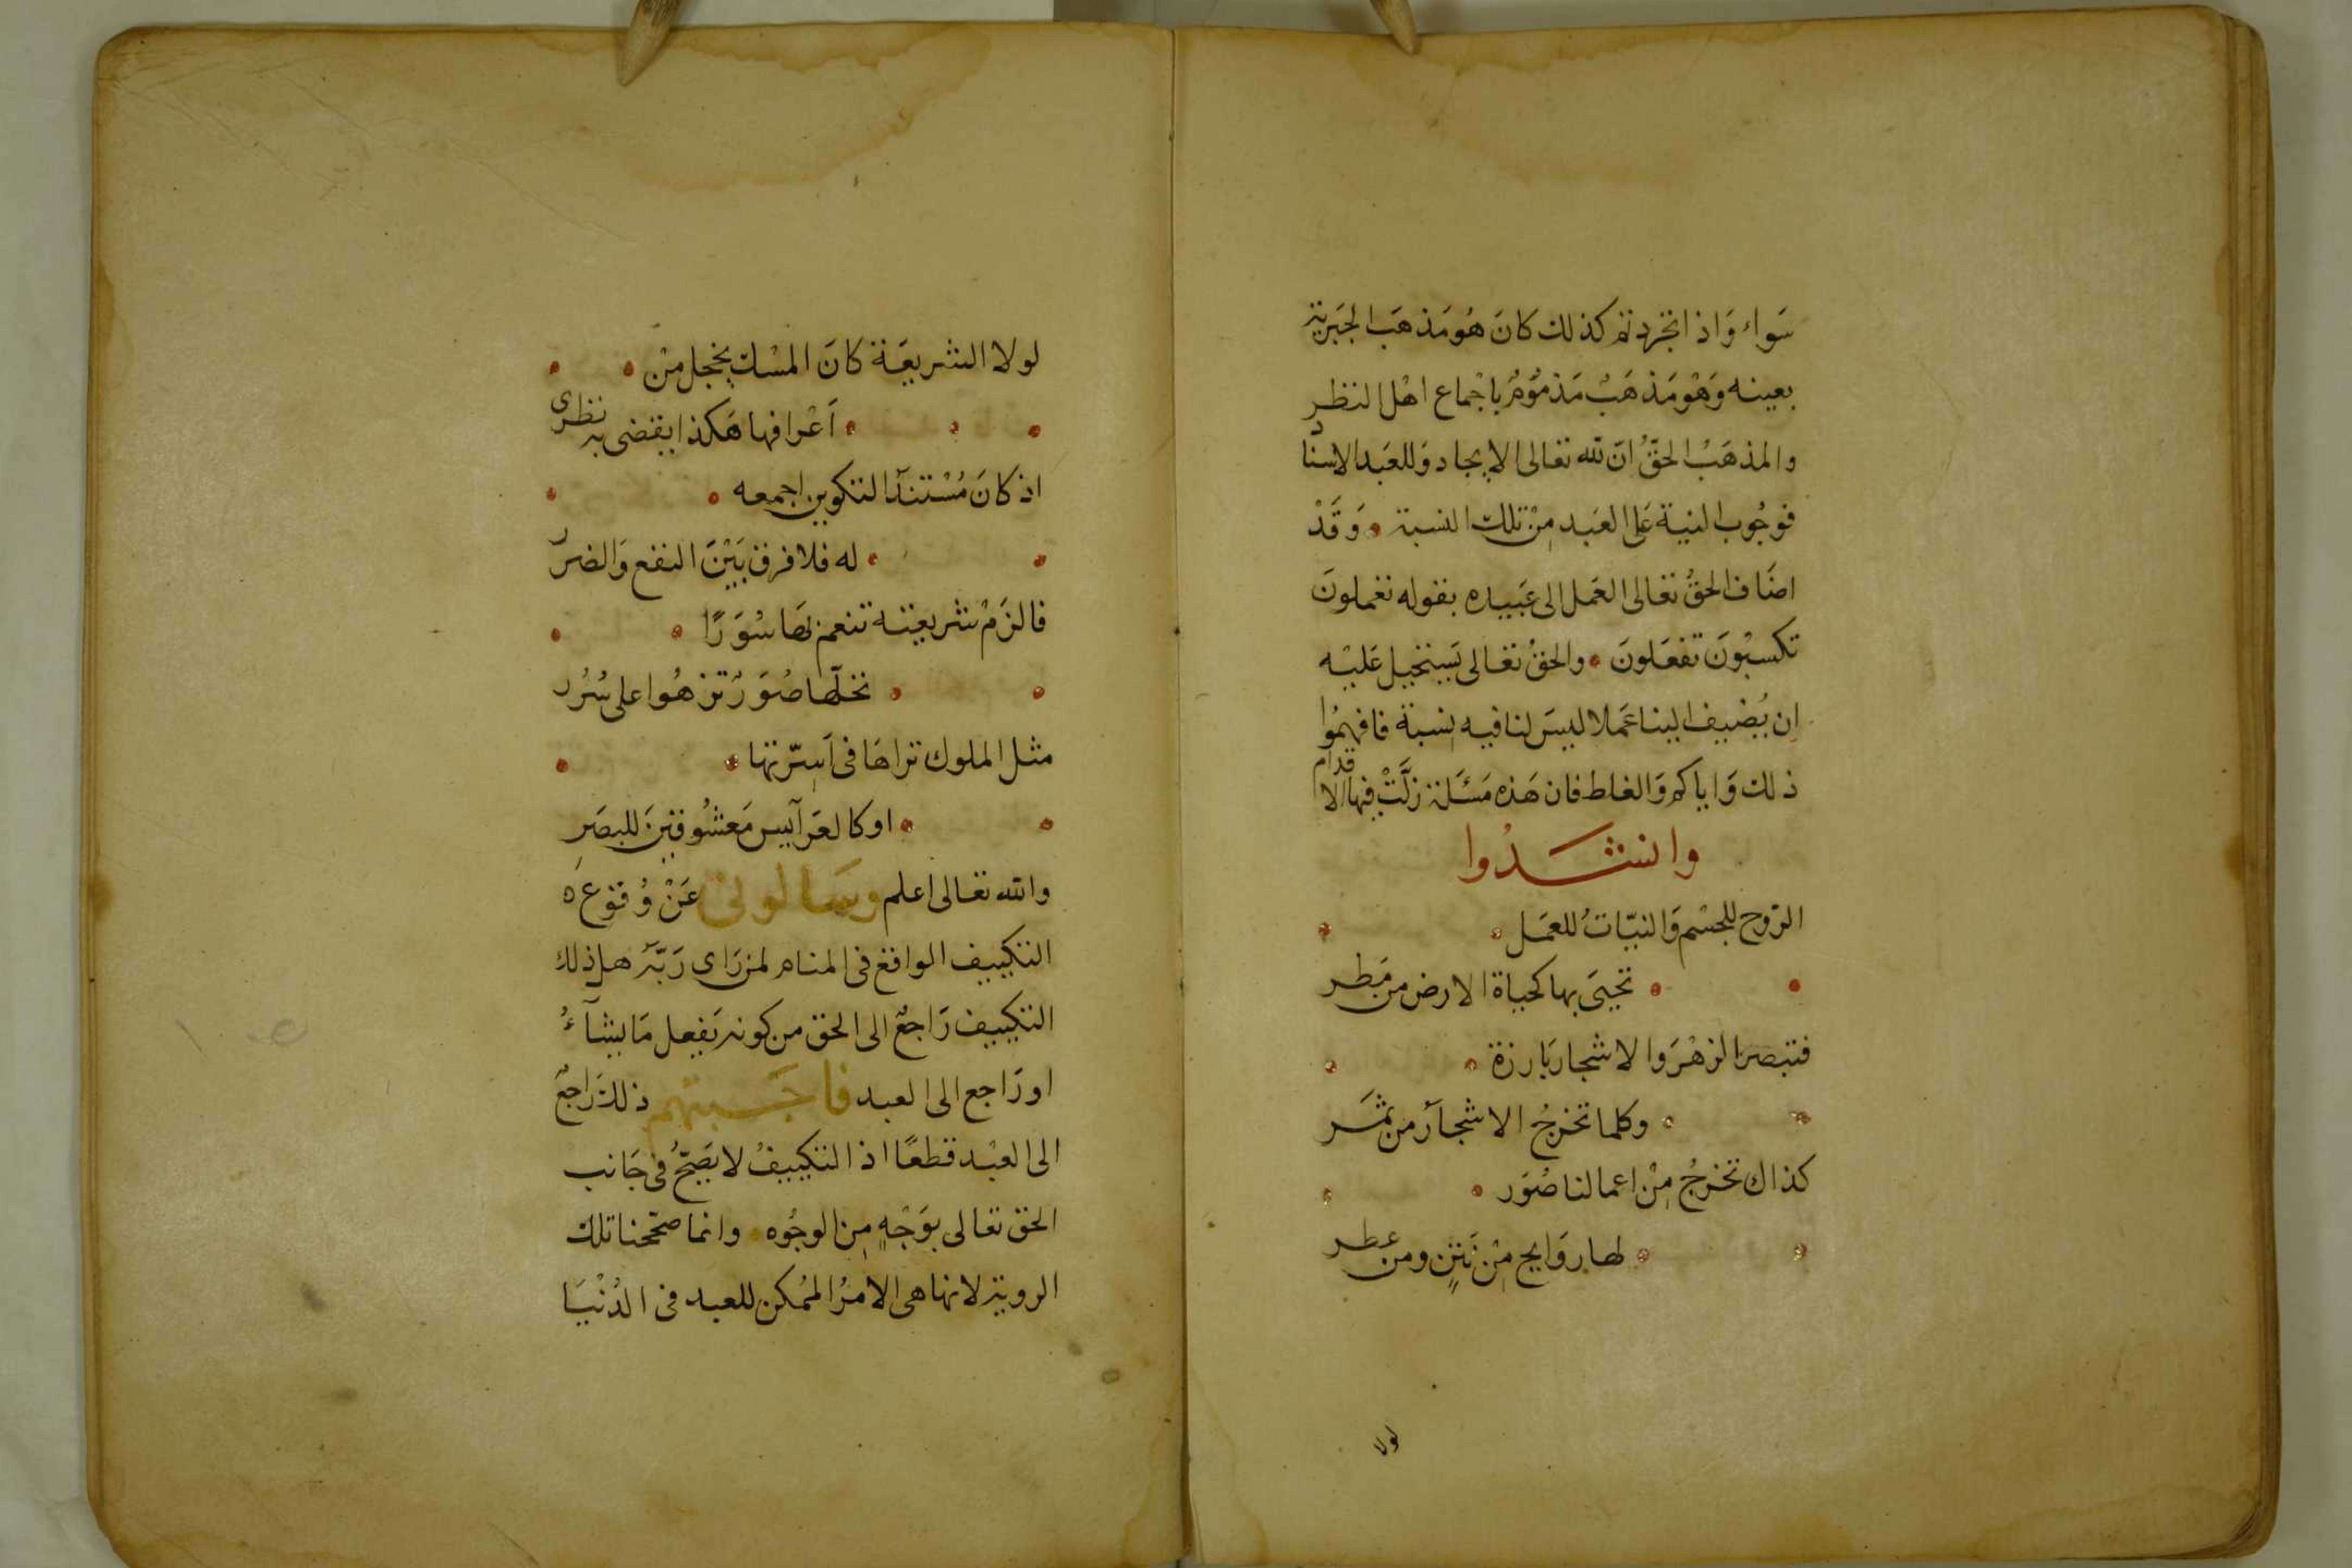 سَواء وَاذا انجَرد تم كذلك كانَ هُو مَذهَب الجَبَرية
بعينه وَهُو مَذهَبٌ مَذمُومٌ باجماع اهْل النظر
والمذهَبُ الحقُّ انّ لله تعالى الايجاد وَللعَبد الاسناد
فوجُوب النية عَلى العَبد مِنْ تلك النسبة وَقَدْ
اضَاف الحقُّ تعَالى العَمل الى عَبيده بقوله تعملونَ
تكسبُونَ تفعَلونَ والحقُ تعَالى يَستحيل عَليْه
ان يُضيف الينا عَملا ليسَ لنا فيه نِسبَة فافهمُوا
ذلك وَاياكم وَالغلط فان هَذه مَسئَلة زلَّتْ فيها الاقدام
وانشَدُوا
الرّوح للجسْم وَالنيّاتُ للعمَل
تحيَى بها كحياة الارض من مَطر
فتبصر الزهْرَ والاشجار بَارزة
وكلما تخرجُ الاشجارُ من ثمَر
كذاك تخرجُ مِنْ اعمالنا صُوَر
لها رَوَايح مِنْ نَتِنٍ ومن عطر
لولا
لولا الشريعَة كانَ المسْك يخجل منْ
اَعْرافها هَكذا يقضى به نظرى
اذ كانَ مُسْتندُ التكوين اجمعه
له فلا فرق بَيْنَ النفع وَالضرَر
فالزَمْ شريعَته تنعم بهَا سُوَرًا
تحلّها صُوَرٌ تزهُوا على سُرُر
مثل الملوك تراهَا فى اَسِرّتها
اوكالعَرآيس مَعشُوقينَ للبصَرِ
والله تعَالى اعلم وسَالونى عَنْ وُقوع
التكييف الواقع فى المنام لمن رَاى رَبَّهُ هل ذلك
التكييف رَاجعٌ الى الحق من كونه يَفعل مَا يشآءُ
او رَاجع الى العبد فاجَبتهم ذلك رَاجعٌ
الى العبْد قطعًا اذ التكييفُ لا يَصحُّ فى جَانب
الحق تعَالى بوَجْهٍ مِن الوجُوه وانما صحّحنا تلك
الروية لانها هى الامرُ المُمكن للعبد فى الدُنْيَا